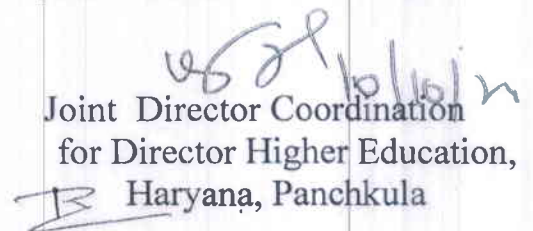 Joint Director Coordination
for Director Higher Education,
Haryana, Panchkula